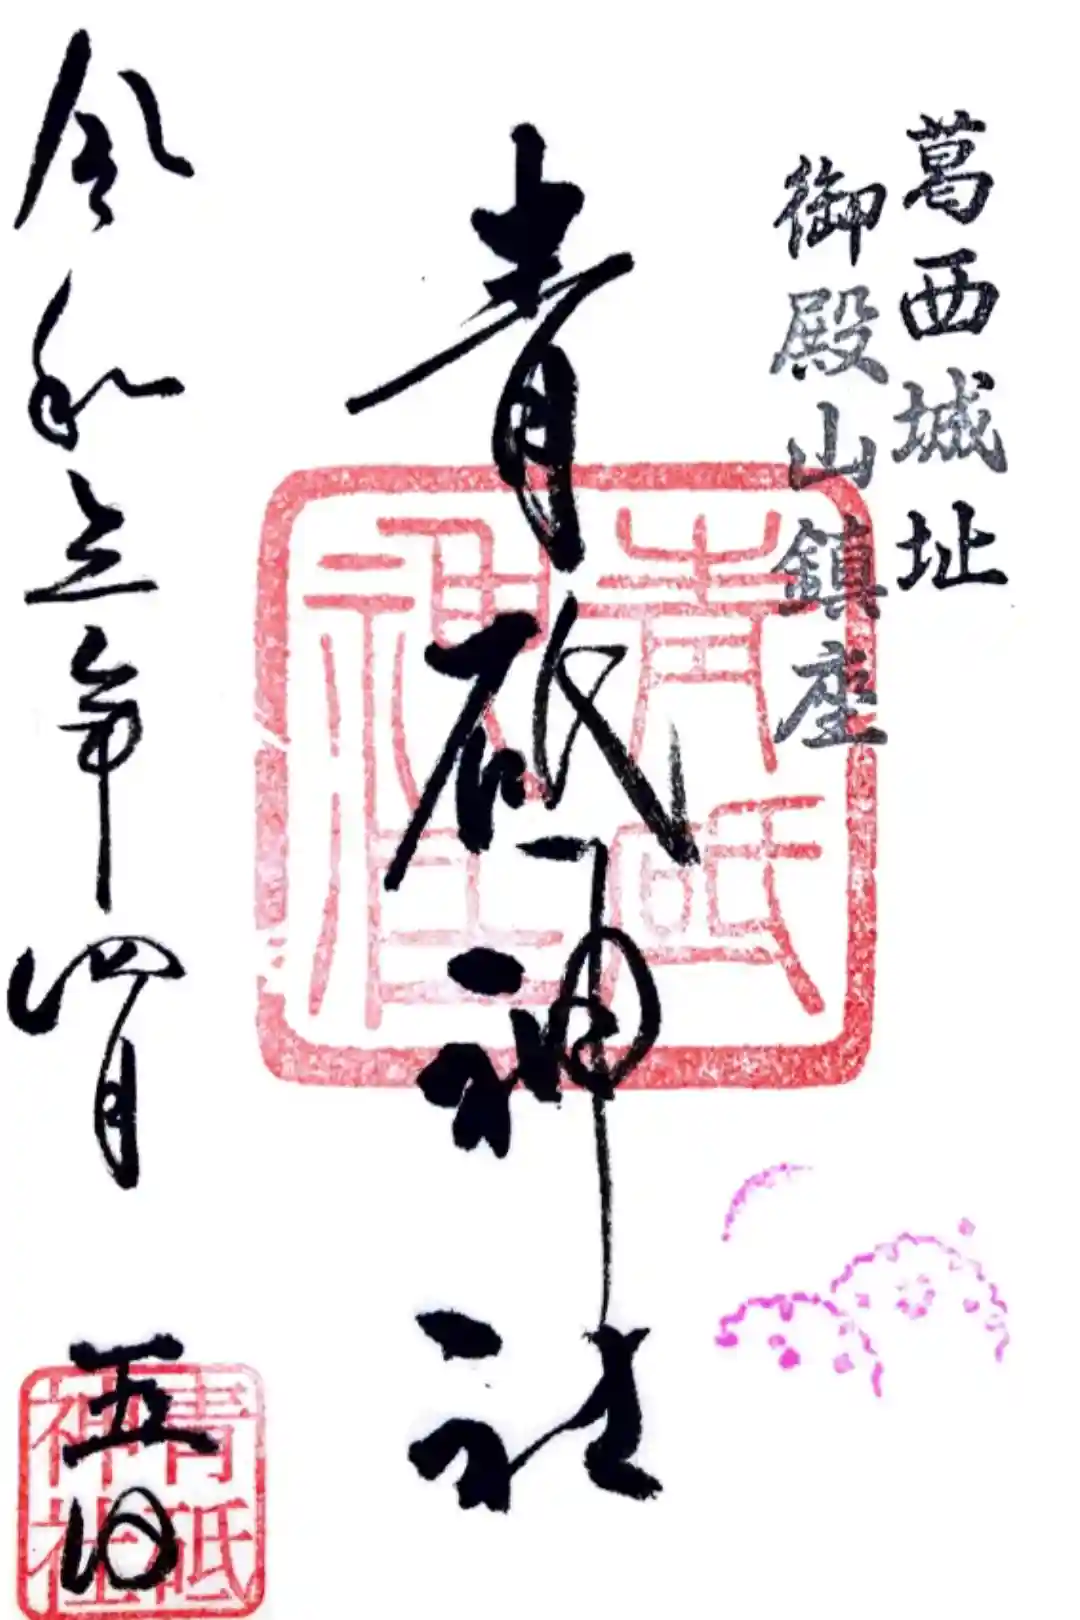 葛西城址
御殿山鎮座
青砥神社
青砥神社
令和五年四月
五日
青砥神社